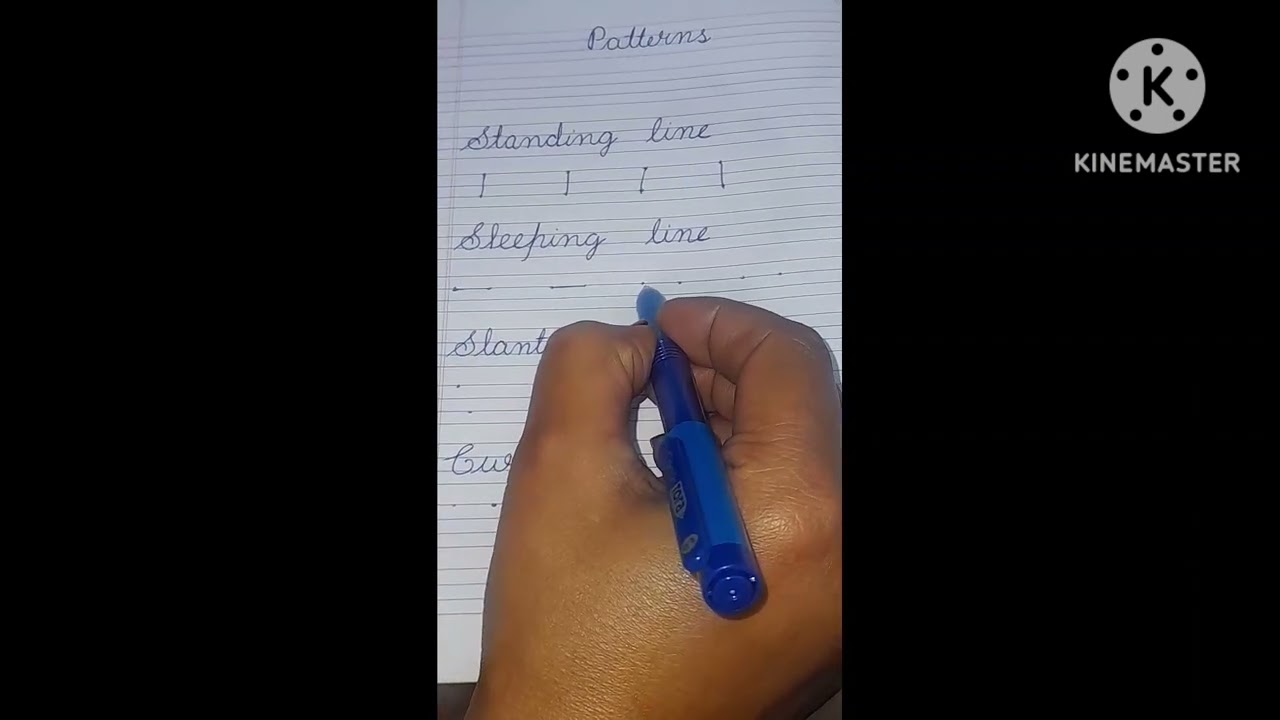 Patterns
Standing line
Sleeping line
Slant
Cur
KINEMASTER